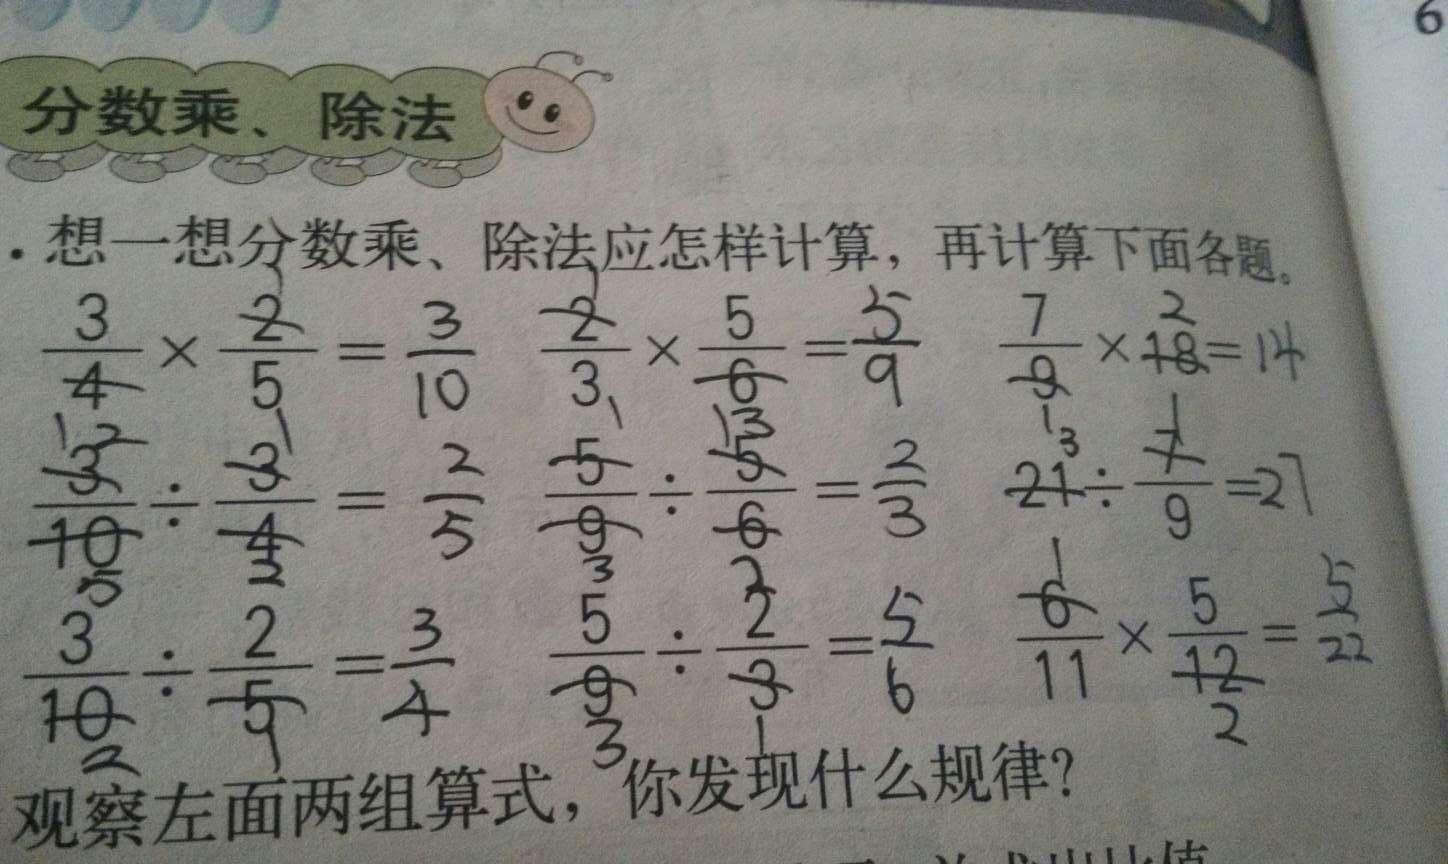 6
分数乘、除法
．想一想分数乘、除法应怎样计算，再计算下面各题。
3/4 × 2/5 = 3/10   2/3 × 5/6 = 5/9   7/9 × 18 = 14
3/10 ÷ 3/4 = 2/5   5/9 ÷ 5/6 = 2/3   21 ÷ 7/9 = 27
3/10 ÷ 2/5 = 3/4   5/9 ÷ 2/3 = 5/6   6/11 × 5/12 = 5/22
观察左面两组算式，你发现什么规律？